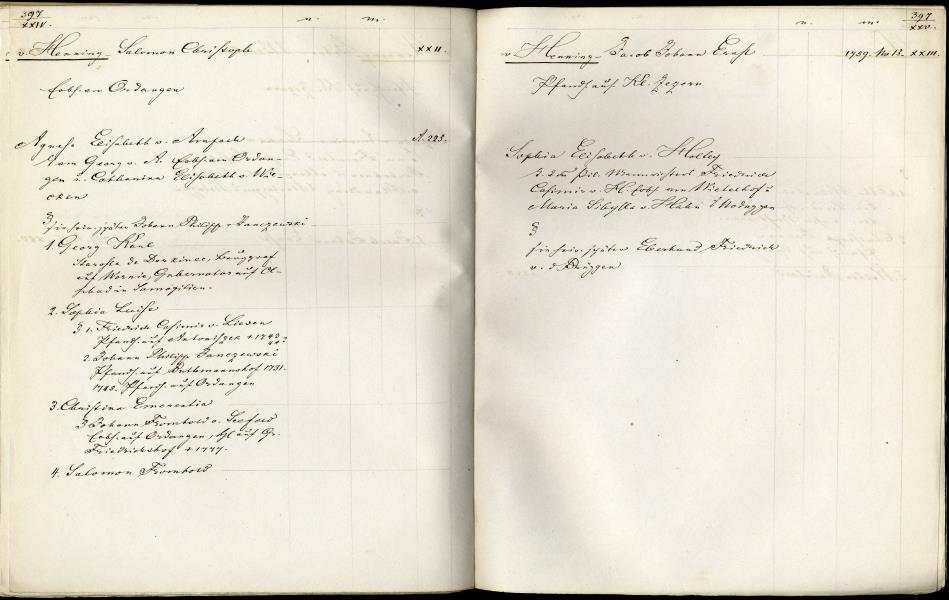 397
XXIV.
n. m.
v. Henning, Salomon Christoph XXII.
Erbh. von Ordangen
Agnesa Elisabeth v. Arnsede A. 223.
Vom Georg v. A. Erbh. von Ordan-
gen u. Catharina Elisabeth v.
cken
später Johann Philipp v. Hanczewski
1. Georg Karl
Starost de Derkince, burggraf
auf Wornie, Gubernator auf Ol-
schad in Samogitien.
2. Sophia Luise
3 1. Friedrich Casimir v. Lieven
Pfandh. auf Antonischek † 1743
2. Johann Philipp Janczewski
Pfandh. auf Buttmannshof 1731.
1742. Pfandh. auf Ordangen
3. Christina Emerentia
3 Johann Trombold v. Seefeld
Erbh. auf Ordangen, auf Gr.
Friedrichshof † 1777.
4. Salomon Trombold
397
XXV.
n. m.
v. Henning, Jacob Johann Ernst 1759. No 13. XXIII.
Pfandh. auf Kl. Zezern
Sophia Elisabeth v. Holtey
Pilt. Mannrichters Friedrich
Casimir v. H. Erbh. von
Maria Sibylla v. Hahn
später Eberhard Friedrich
v. d. Brüggen